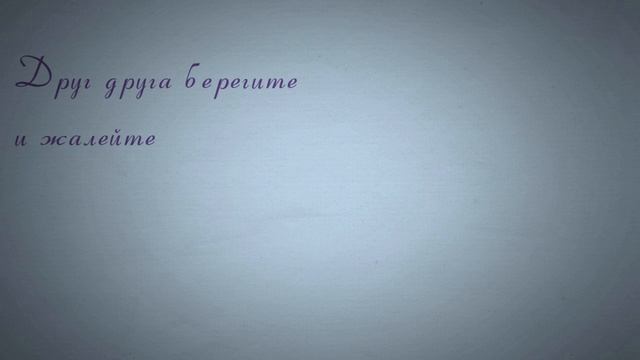 Друг друга берегите
и жалейте